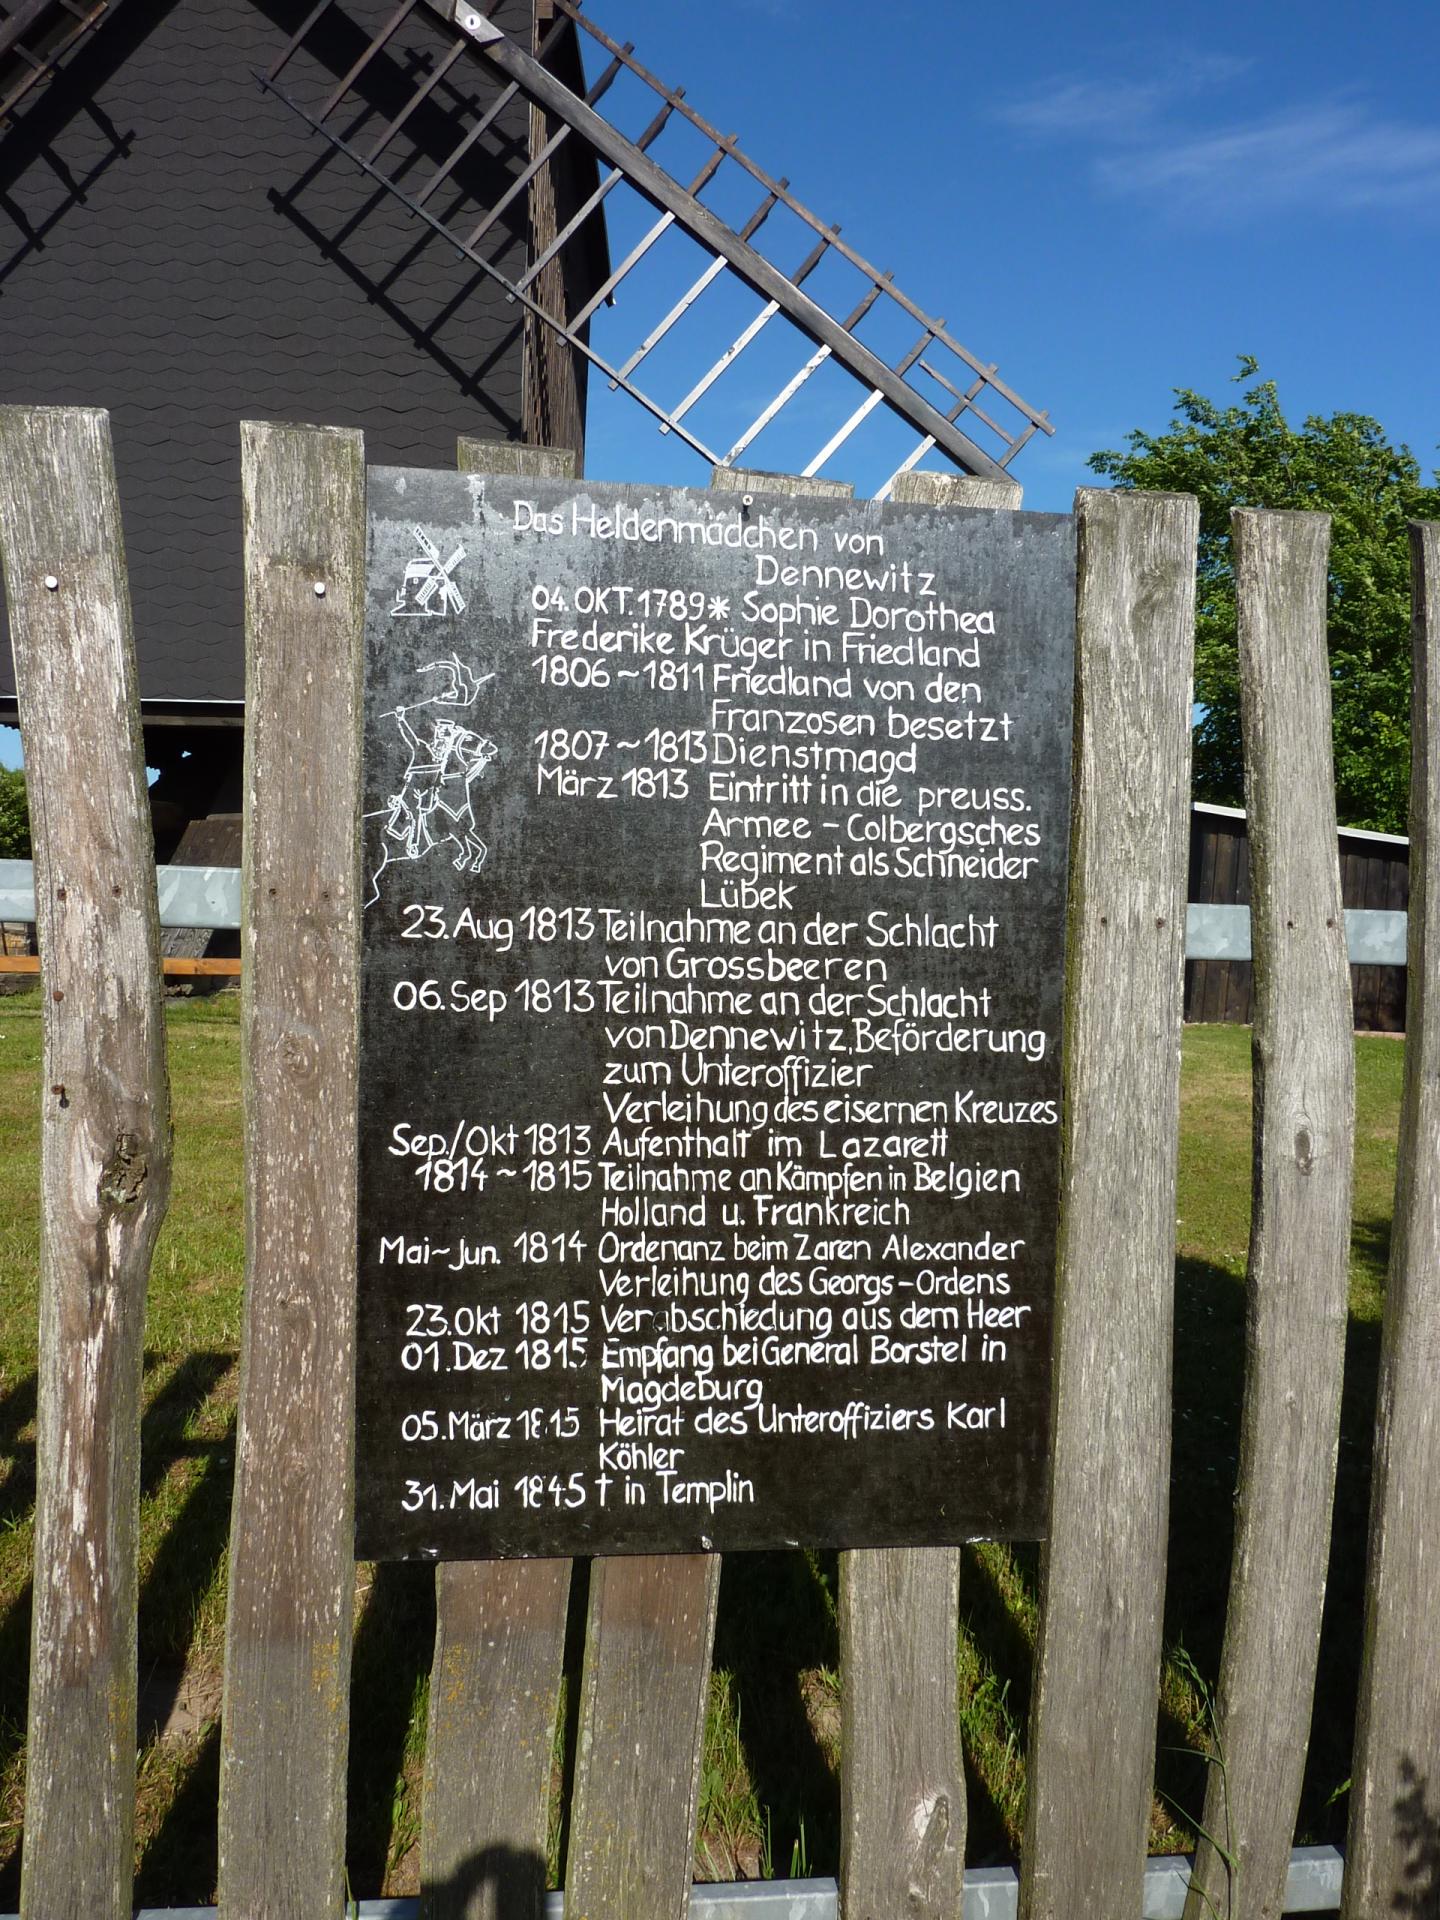 Das Heldenmädchen von
Dennewitz
04. OKT. 1789 * Sophie Dorothea
Frederike Krüger in Friedland
1806 ~ 1811 Friedland von den
Franzosen besetzt
1807 ~ 1813 Dienstmagd
März 1813 Eintritt in die preuss.
Armee - Colbergsches
Regiment als Schneider
Lübek
23. Aug 1813 Teilnahme an der Schlacht
von Grossbeeren
06. Sep 1813 Teilnahme an der Schlacht
von Dennewitz, Beförderung
zum Unteroffizier
Verleihung des eisernen Kreuzes
Sep./Okt 1813 Aufenthalt im Lazarett
1814 ~ 1815 Teilnahme an Kämpfen in Belgien
Holland u. Frankreich
Mai ~ Jun. 1814 Ordenanz beim Zaren Alexander
Verleihung des Georgs - Ordens
23. Okt 1815 Verabschiedung aus dem Heer
01. Dez 1815 Empfang bei General Borstel in
Magdeburg
05. März 1815 Heirat des Unteroffiziers Karl
Köhler
31. Mai 1845 † in Templin